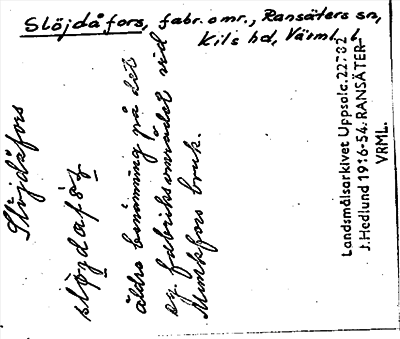 Slöjdåfors, fabr.omr., Ransäters sn,
Kils hd, Värml. l.
Slöjdåfors
äldre benämning på det
s.k. fabriksområdet vid
Munkfors bruk.
Landsmålsarkivet Uppsala. 22782
J. Hedlund 1916-54. RANSÄTER
VRML.